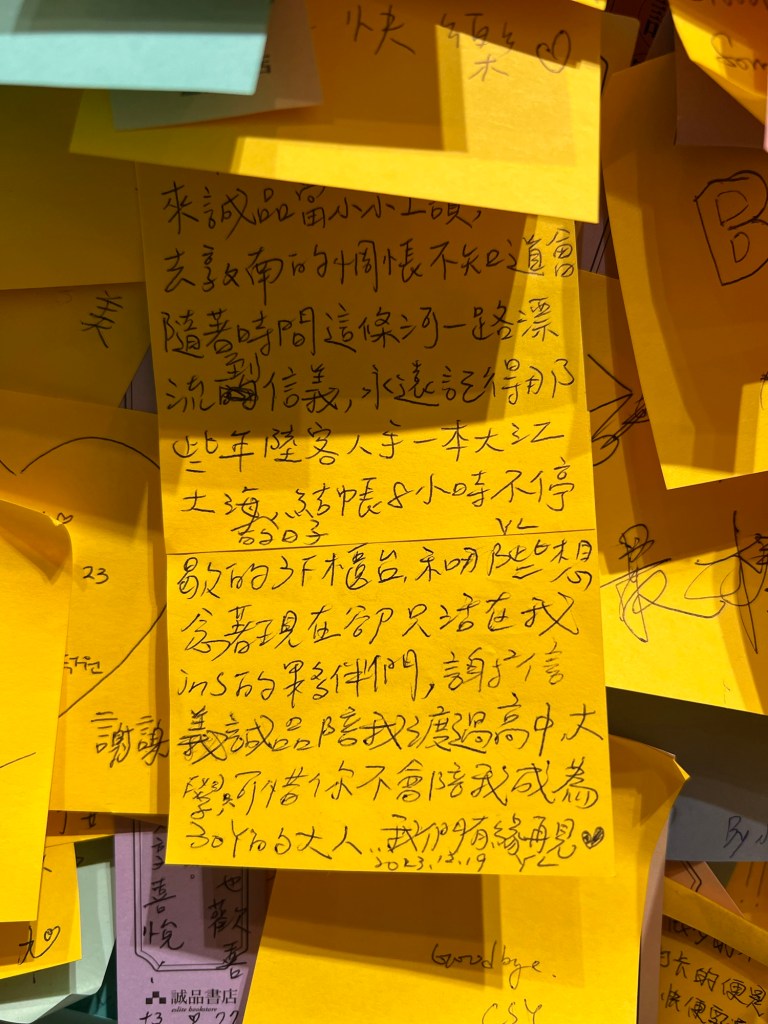 快樂♡
來誠品當小小工讀,
去敦南的惆悵不知道會
隨著時間這條河一路漂
流到信義,永遠記得那
些年陸客人手一本大江
大海、結帳8小時不停
的日子
YL
歇的3F櫃台,和那些想
念著現在卻只活在我
ins的夥伴們,謝謝信
義誠品陪我渡過高中大
學可惜你不會陪我成為
30Y的大人..我們有緣再見♥
2023.12.19 YL
美
23
謝謝
B
喜悅
也歡喜
誠品書店
eslite bookstore
Goodbye.
CSY
By
卡的便是